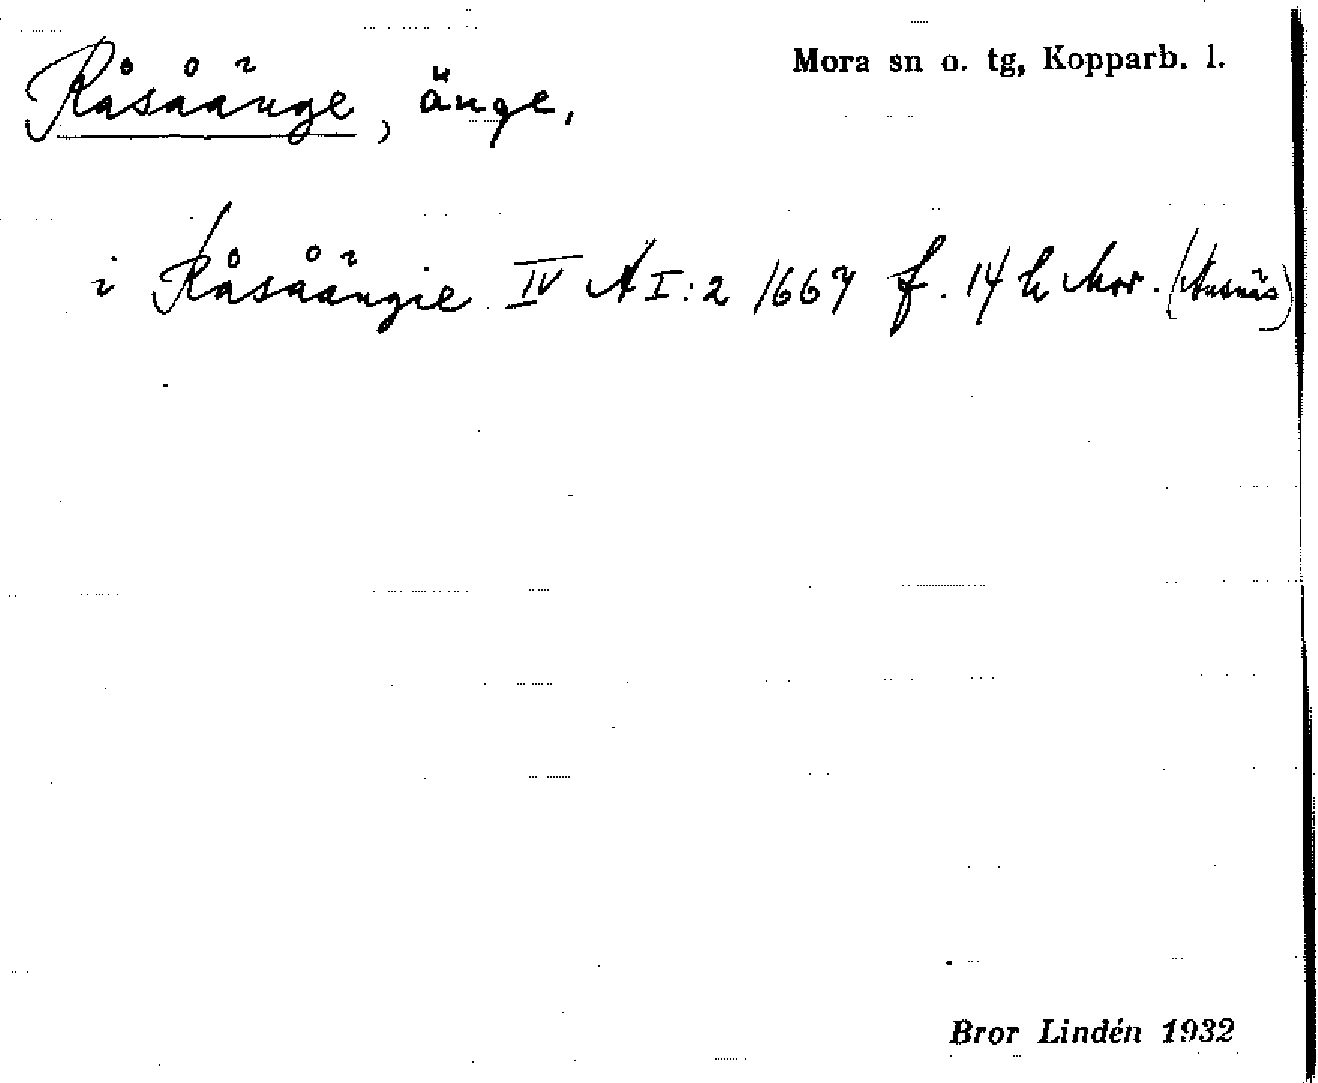 Mora sn o. tg, Kopparb. l.
Råsåänge, änge,
i Råsåängie IV A I:2 1667 f. 14 h Mor. (Vusnäs)
Bror Lindén 1932